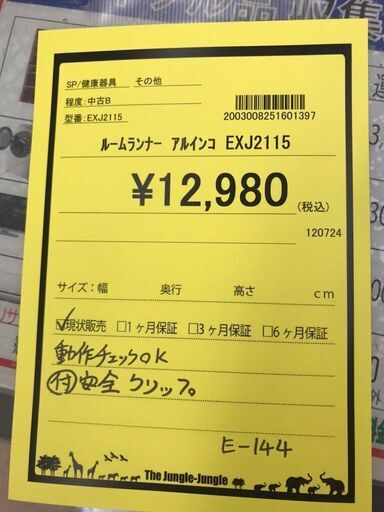 SP/健康器具 その他
程度:中古B
型番:EXJ2115
2003008251601397
ルームランナー アルインコ EXJ2115
¥12,980(税込)
120724
サイズ:幅 奥行 高さ cm
☑現状販売 □1ヶ月保証 □3ヶ月保証 □6ヶ月保証
動作チェックOK
付安全クリップ。
E-144
The Jungle-Jungle